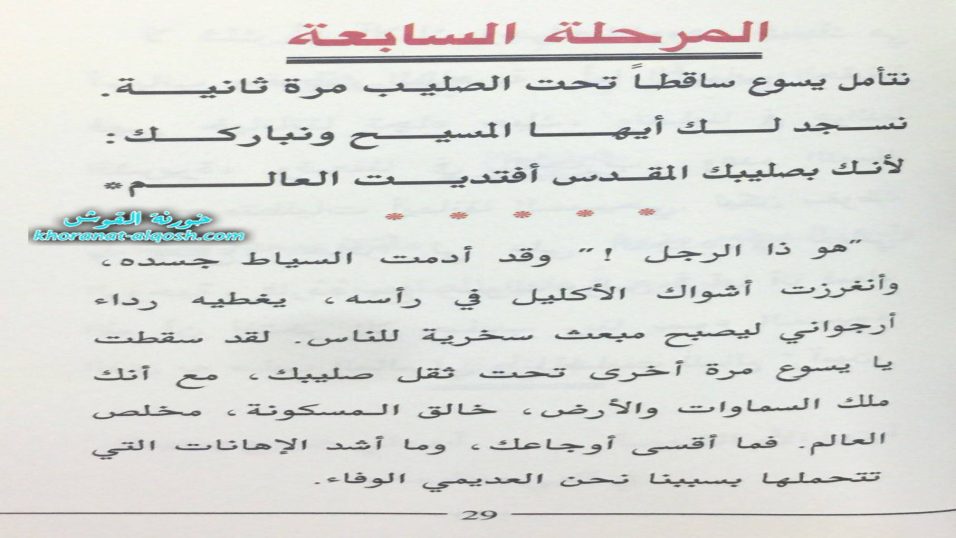 المرحلة السابعة
نتأمل يسوع ساقطاً تحت الصليب مرة ثانية.
نسجد لك أيها المسيح ونباركك:
لأنك بصليبك المقدس أفتديت العالم*
* * * * *
خورنة القوش
khoranat-alqosh.com
"هو ذا الرجل !" وقد أدمت السياط جسده،
وأنغرزت أشواك الأكليل في رأسه، يغطيه رداء
أرجواني ليصبح مبعث سخرية للناس. لقد سقطت
يا يسوع مرة أخرى تحت ثقل صليبك، مع أنك
ملك السماوات والأرض، خالق المسكونة، مخلص
العالم. فما أقسى أوجاعك، وما أشد الإهانات التي
تتحملها بسببنا نحن العديمي الوفاء.
29